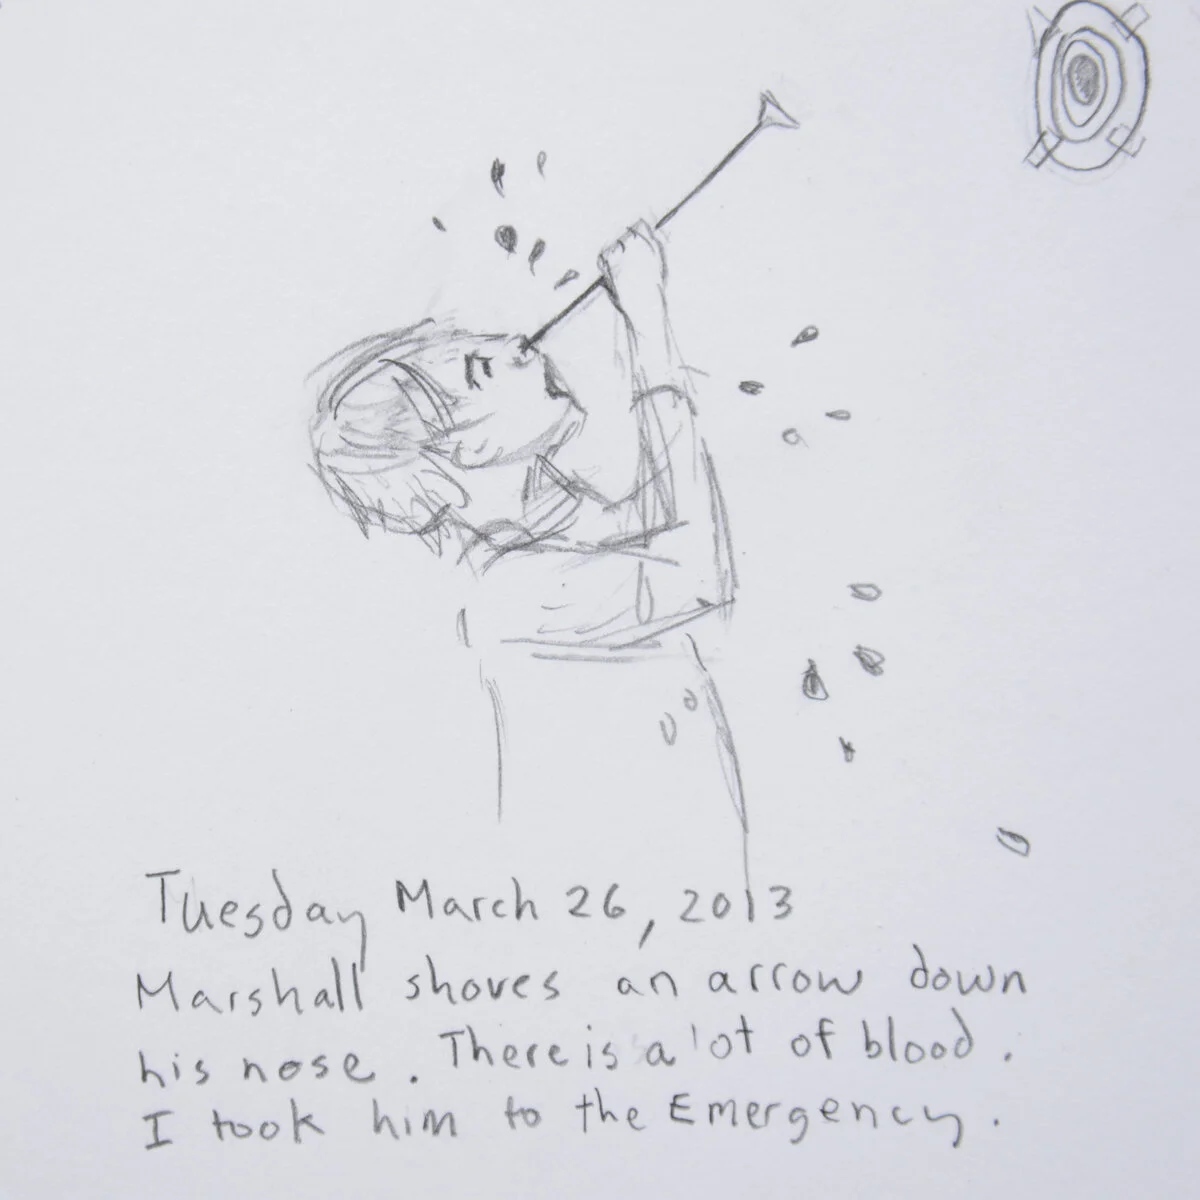 Tuesday March 26, 2013
Marshall shoves an arrow down
his nose. There is a lot of blood.
I took him to the Emergency.